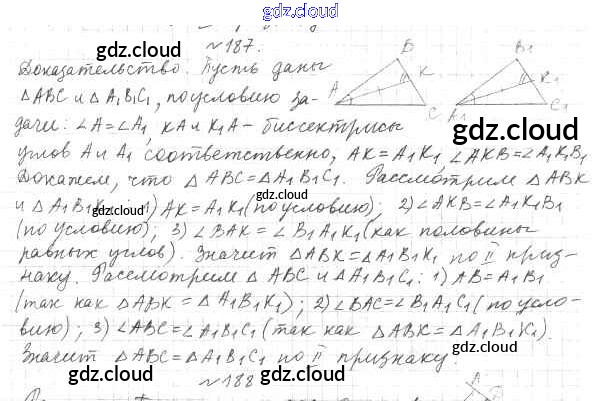 gdz.cloud
gdz.cloud
№187.
Доказательство. Пусть даны
△ABC и △A₁B₁C₁, по условию за-
дачи: ∠A=∠A₁, KA и K₁A - биссектрисы
углов A и A₁ соответственно, AK=A₁K₁, ∠AKB=∠A₁K₁B₁
Докажем, что △ABC=△A₁B₁C₁. Рассмотрим △ABK
и △A₁B₁K₁: 1) AK=A₁K₁ (по условию); 2) ∠AKB=∠A₁K₁B₁
(по условию); 3) ∠BAK=∠B₁A₁K₁ (как половины
равных углов). Значит △ABK=△A₁B₁K₁ по II приз-
наку. Рассмотрим △ABC и △A₁B₁C₁: 1) AB=A₁B₁
(так как △ABK=△A₁B₁K₁); 2) ∠BAC=∠B₁A₁C₁ (по усло-
вию); 3) ∠ABC=∠A₁B₁C₁ (так как △ABK=△A₁B₁K₁).
Значит △ABC=△A₁B₁C₁ по II признаку.
№188
B
K
A
C
B₁
K₁
A₁
C₁
A
gdz.cloud
gdz.cloud
gdz.cloud
gdz.cloud
gdz.cloud
gdz.cloud
gdz.cloud
gdz.cloud